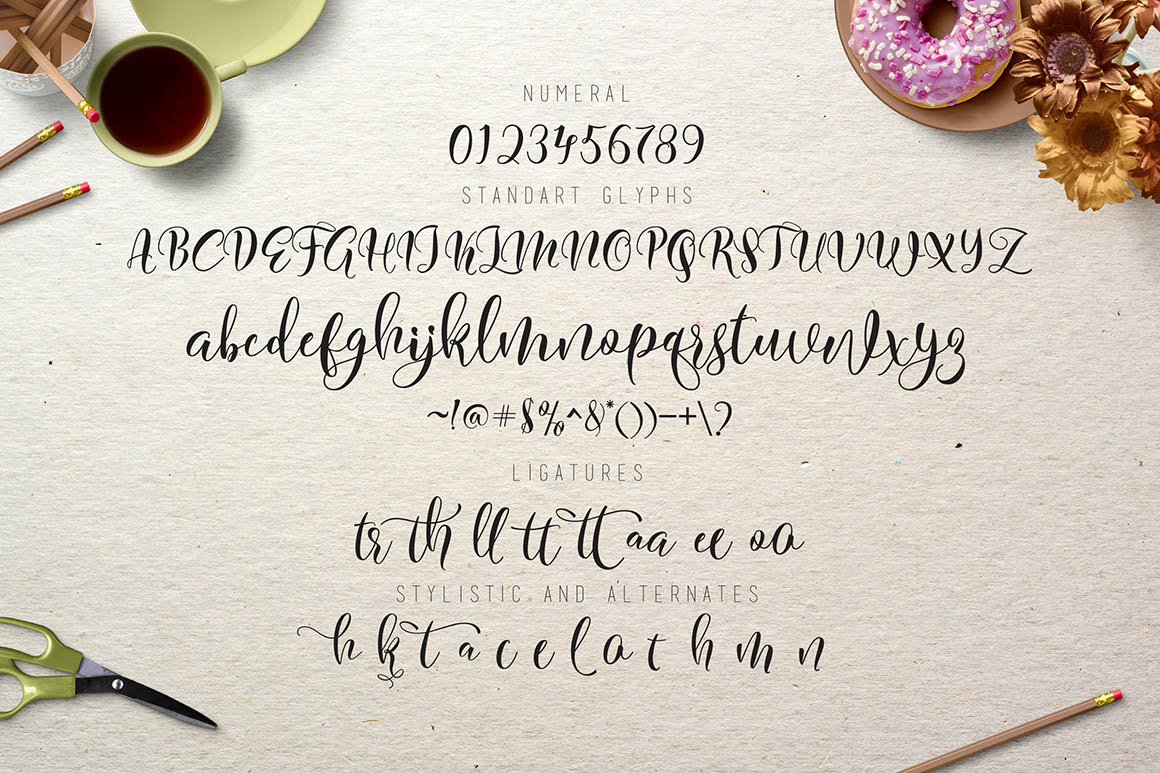 NUMERAL
0123456789
STANDART GLYPHS
ABCDEFGHIJKLMNOPQRSTUVWXYZ
abcdefghijklmnopqrstuvwxyz
~!@#$%^&*())-+\?
LIGATURES
tr th ll tt tt aa ee oo
STYLISTIC AND ALTERNATES
h k t a c e l o t h m n